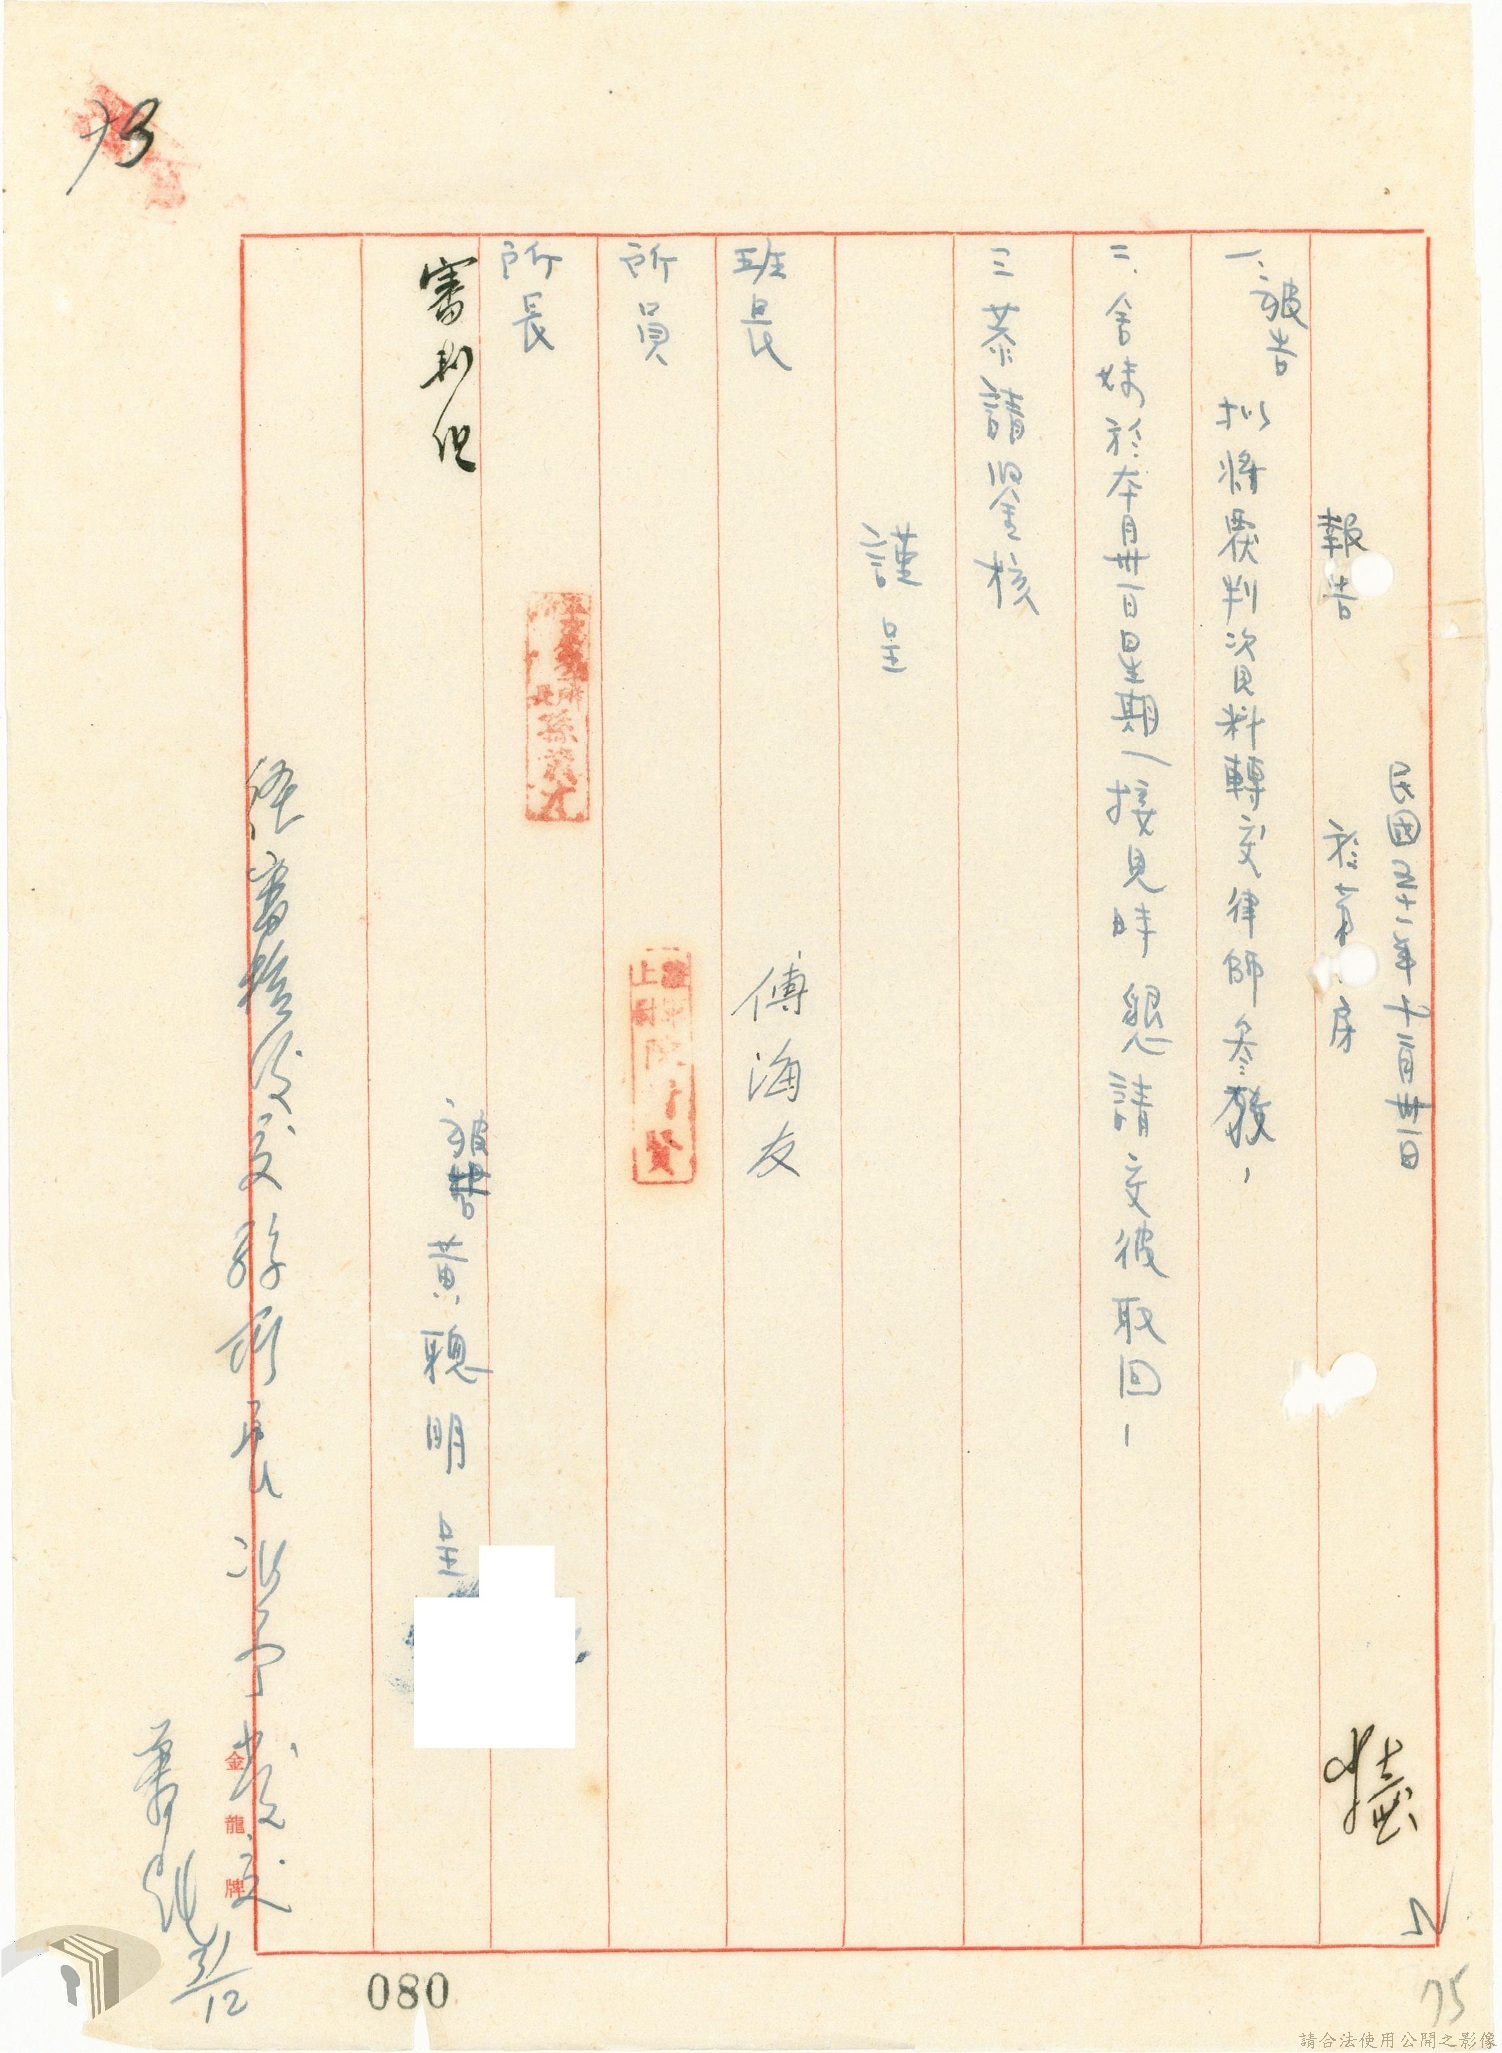 報告
民國五十一年十二月卅一日
於第 房
一、被告擬將覆判資料轉交律師參發,
二、舍妹於本月卅一日星期一接見時懇請交彼取回,
三 恭請鑒核
謹呈
班長 傅海友
所員
上尉
所長
孫
被告 黃聰明 呈
審
經審核後交孫所長准予發交
31/12
金龍牌
080
75
73
請合法使用公開之影像